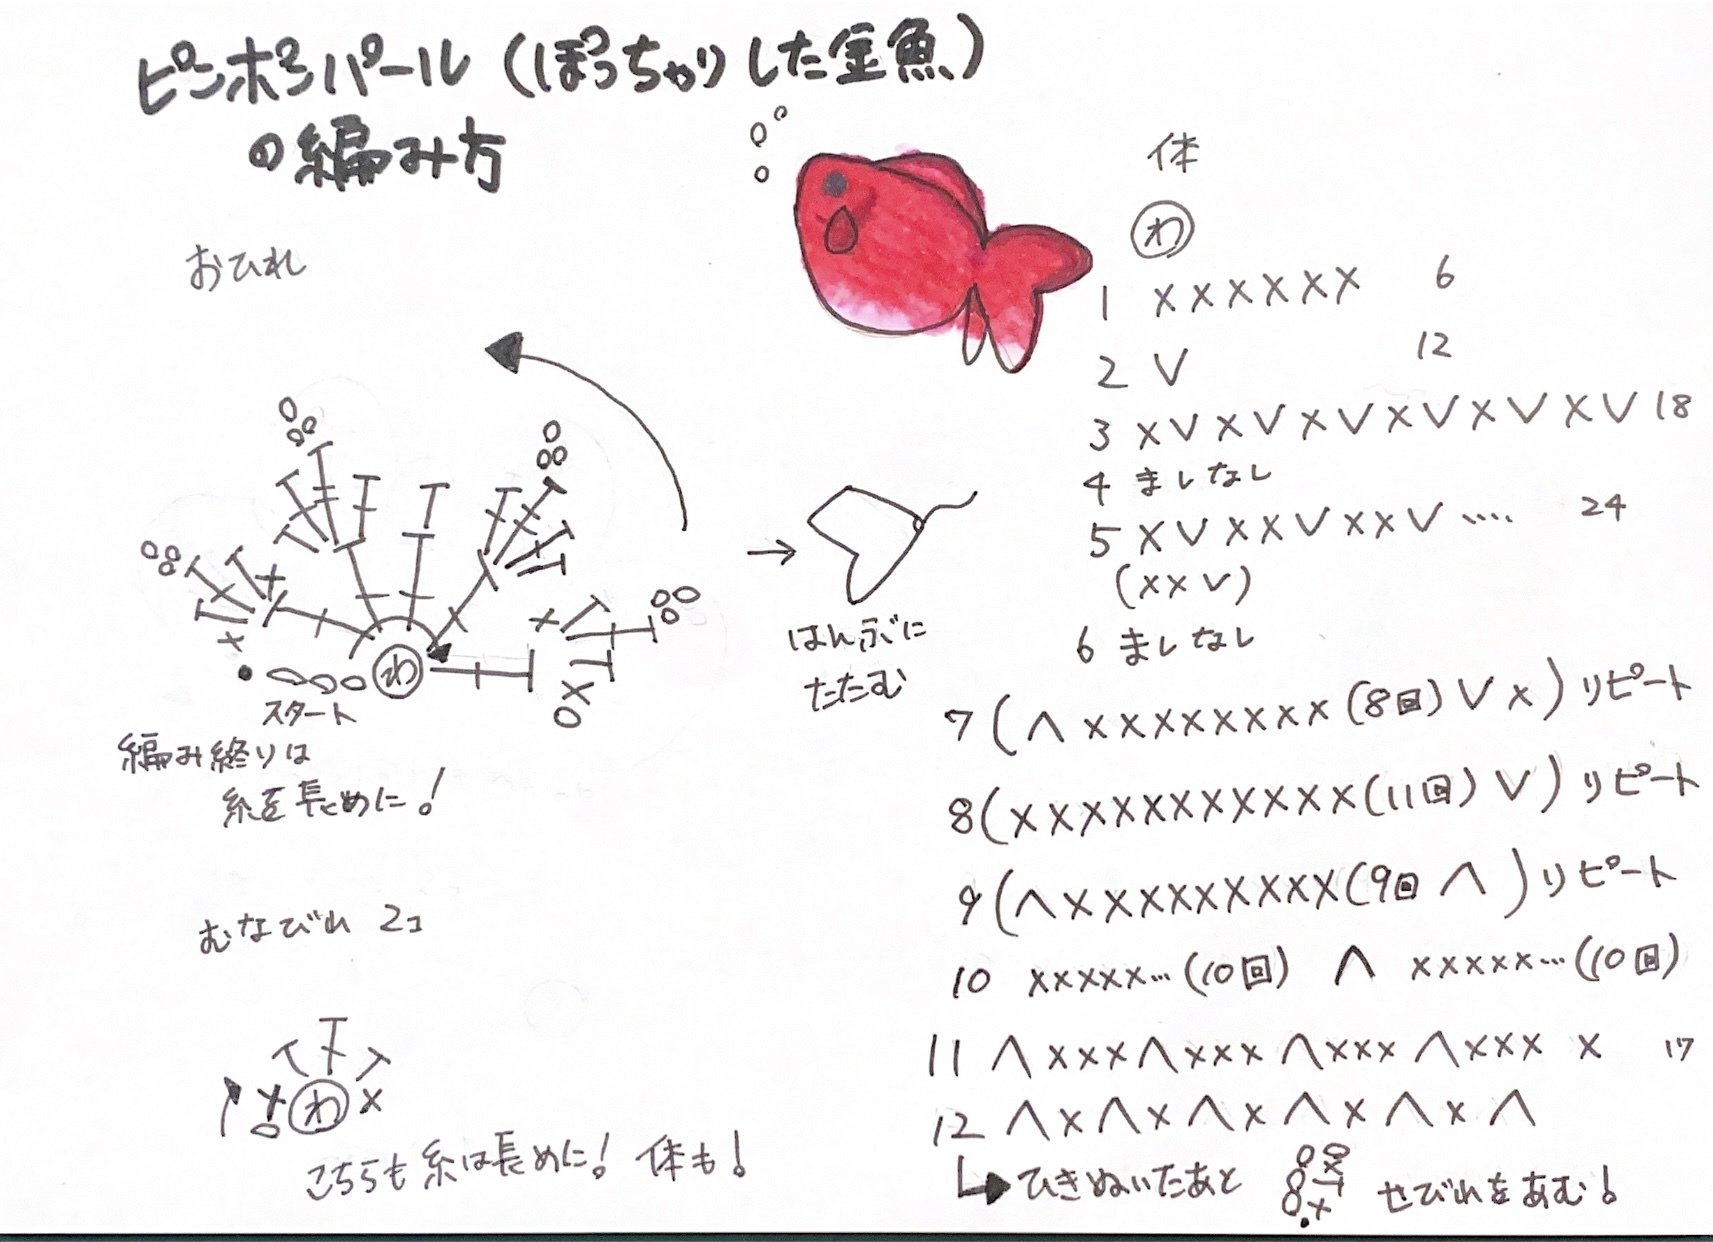 ピンポンパール(ぽっちゃりした金魚)
の編み方
おひれ
わ
スタート
編み終りは
糸を長めに!
はんぶんに
たたむ
むなびれ 2コ
わ
こちらも糸は長めに! 体も!
体
わ
1 ×××××× 6
2 V 12
3 ×V×V×V×V×V×V 18
4 ましなし
5 ×V××V××V···· 24
(××V)
6 ましなし
7 (∧××××××××(8回)V×)リピート
8 (×××××××××××(11回)V)リピート
9 (∧×××××××××(9回∧)リピート
10 ×××××···(10回) ∧ ×××××···(10回)
11 ∧×××∧×××∧×××∧××× × 17
12 ∧×∧×∧×∧×∧×∧
ひきぬいたあと せびれをあむ!